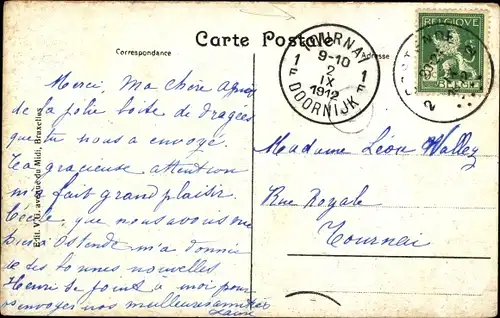 Carte Postale
Correspondance
Adresse
TOURNAI
9-10
2
IX
1912
1 F
1 F
DOORNIJK
BELGIQUE
Merci, ma chère
de la jolie boite de dragées
que tu nous a envoyé.
Ta gracieuse attention
m'a fait grand plaisir.
Cécile, que nous avons vue
à Ostende m'a donnée
de tes bonnes nouvelles
Henri se joint à moi pour
envoyer nos meilleures amitiés
Madame Léon Wallez
Rue Royale
Tournai
Edit. V.G. avenue du Midi, Bruxelles